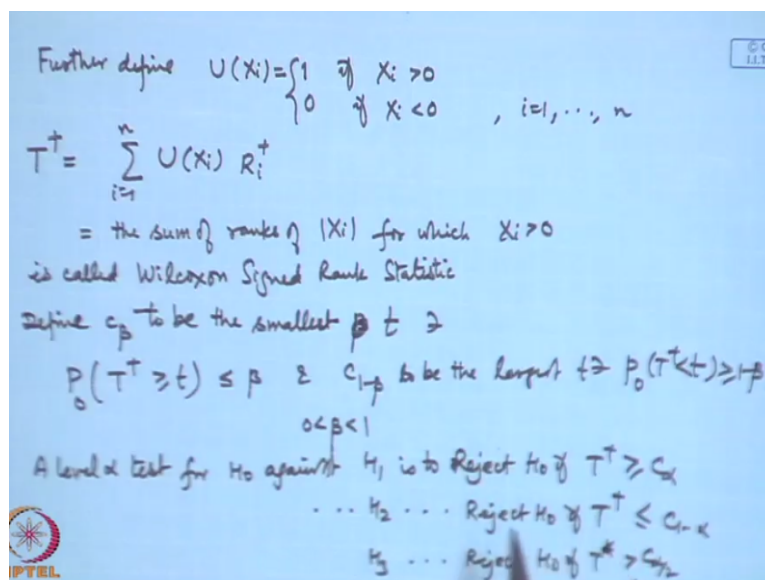 © C
I.I.T
Further define U(Xi) = { 1 if Xi > 0
0 if Xi < 0 , i=1, ..., n
T⁺ = Σ_{i=1}^{n} U(Xi) Ri⁺
= the sum of ranks of |Xi| for which Xi > 0
is called Wilcoxon Signed Rank Statistic
Define c_β to be the smallest t ∋
P₀(T⁺ ≥ t) ≤ β & C_{1-β} to be the largest t ∋ P₀(T⁺ < t) ≥ 1-β
0<β<1
A level α test for H₀ against H₁ is to Reject H₀ if T⁺ ≥ C_α
... H₂ ... Reject H₀ if T⁺ ≤ C_{1-α}
H₃ ... Reject H₀ if T* > C_{α/2}
PTEL